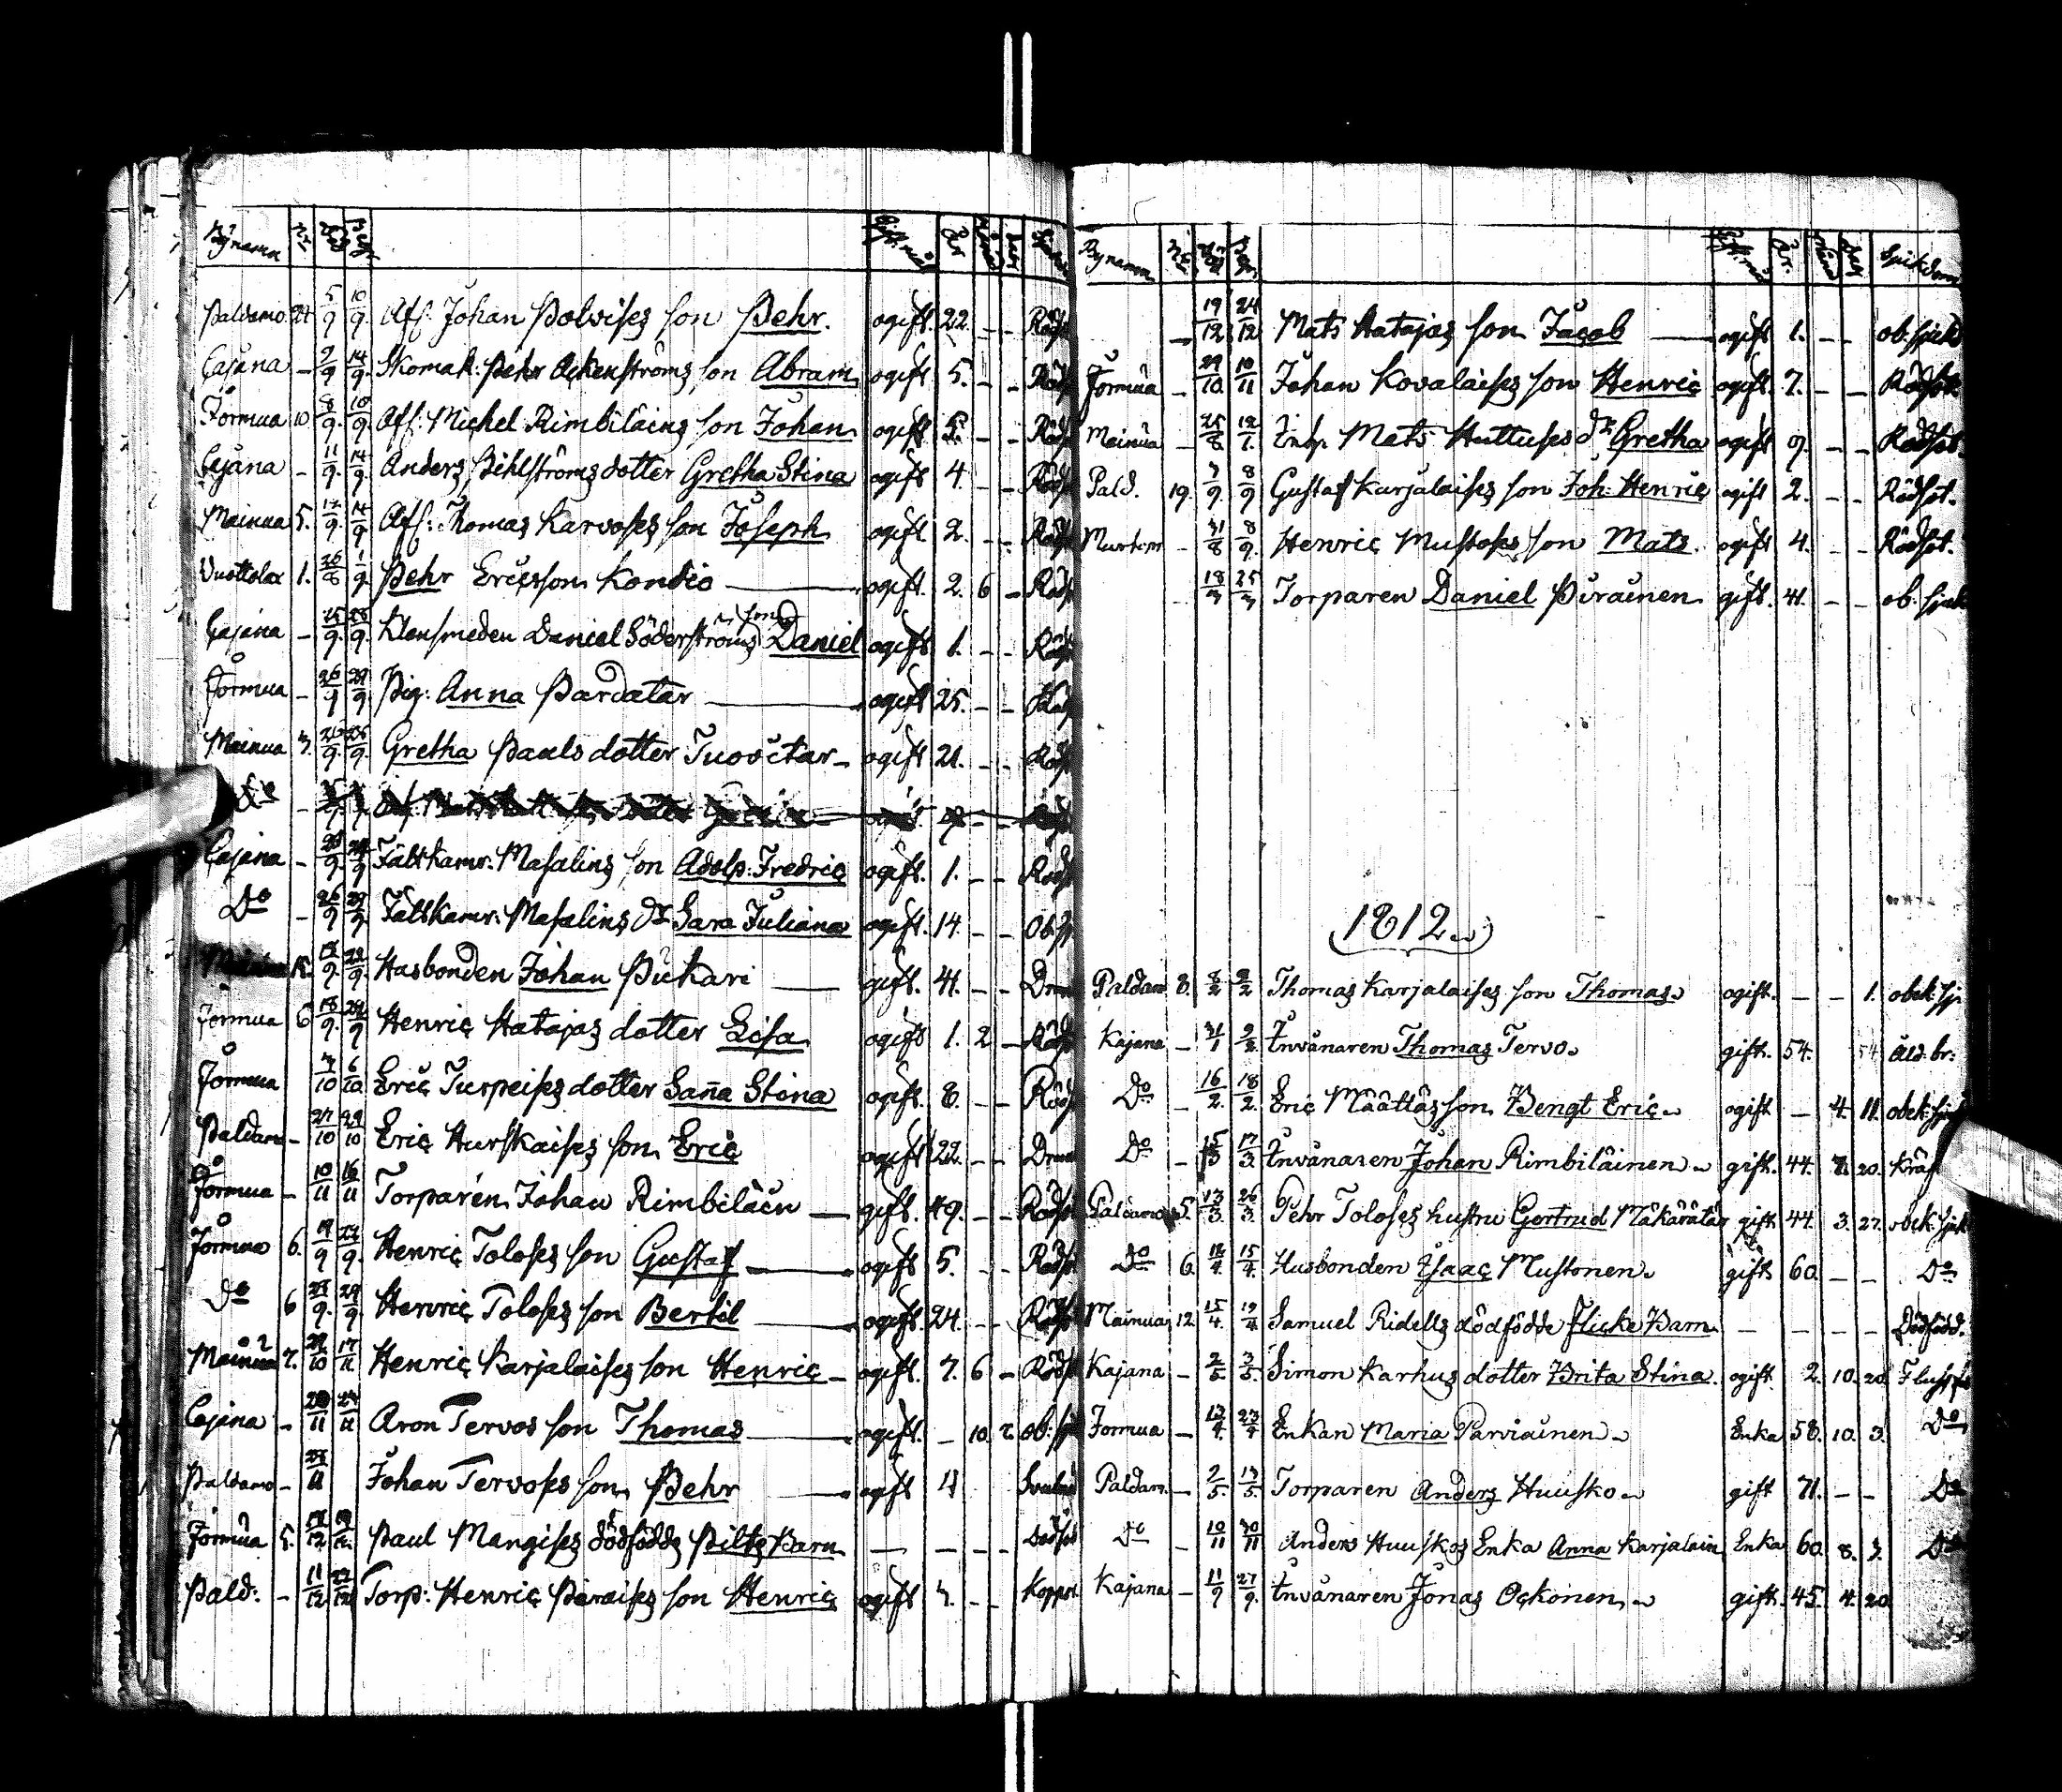 Bynamn N:o Död Begr. Giftmål År Månad dag Sjukdom
Paldamo 24 5/9 10/9 Aff. Johan Polvises son Pehr. ogift. 22. – – Rödst
Cajana – 2/9 14/9 Skomak: Pehr Ackenströms son Abram ogift 5. – – Röds
Jormua 10 8/9. 10/9. Aff: Michel Rimbiläins son Johan ogift 5. – – Röds
Cajana – 11/9. 14/9. Anders Pihlströms dotter Gretha Stina ogift 4. – – Röds
Mainua 5. 12/9. 14/9 Aff: Thomas Karvoses son Joseph ogift 2. – – Röds
Vuottolax 1. 26/8 1/9. Pehr Ericsson Kondio ogift. 2. 6 – Röds
Cajana – 15/9. 9. Klensmeden Daniel Söderströms son Daniel ogift 1. – – Röds
Jormua – 26/9 29/9. Pig: Anna Pardatar ogift 25. – –
Mainua 3. 9. 26/9. Gretha Pauls dotter Tuovitar – ogift 21. – – Röds
D:o –
Cajana – 9. 9 Fältkamr: Masalins son Adolp: Fredric ogift. 1. – – Röds
D:o – 26/9 29/9. Fältkamr: Masalins d:r Sara Juliana ogift. 14. – – Ob: sj
9. 22/9. Hasbonden Johan Pukari gift. 41. – – Drun
Jormua 6 18/9. 24/9 Henric Hatajas dotter Lisa ogift 1. 2 – Röds
Jormua 3/10 6/10. Eric Turpeises dotter Sanna Stina ogift. 8. – – Röds
Paldam – 27/10 29/10 Eric Hurskaises son Eric ogift 22. – – Drun
Jormua – 10/11 16/11 Torparen Johan Rimbiläin gift. 49. – – Rödst
Jormua 6. 19/9 22/9. Henric Toloses son Gustaf ogift 5. – – Rödst
D:o 6 9. 29/9 Henric Toloses son Bertil ogift. 24. – – Rödst
Mainua 7. 29/10 17/11 Henric Karjalaises son Henric – ogift. 7. 6 – Rödst
Cajana – 11 24/11 Aron Tervos son Thomas ogift. – 10. 2 ob: sju
Paldamo – 11 Johan Tervoses son Pehr ogift 4
Jormua 5. 12 12. Paul Mangises dödfödde Pilts Barn – – – – Dödföd
Pald: – 11/12 22/12 Torp: Henric Päraises son Henric ogift – – Koppor
Bynamn N:o Död Begr. Giftmål År. Månad dag Sjukdom
– 19/12 24/12 Mats Hatajas son Jacob ogift 1. – – ob: sjukd
Jormua – 29/10. 10/11 Johan Kovalaises son Henric ogift. 7. – – Rödsot.
Mainua – 25/8. Inhy. Mats Huttuses d:r Gretha ogift 9. – – Rödsot.
Pald. 19. 3/9. 8/9 Gustaf Karjalaises son Joh: Henric ogift 2. – – Rödsot.
Murtom – 31/8 8/9. Henric Mustoses son Mats. ogift 4. – – Rödsot.
18/3 25/3 Torparen Daniel Piirainen gift. 41. – – ob: sjuk
1812.
Paldam 8. 8/2 9/2 Thomas Karjalaises son Thomas. ogift. – – 1. obek. sj
Kajana – 31/1 9/2. Invånaren Thomas Tervo. gift. 54. br:
D:o – 16/2. 18/2. Eric Määttäs son Bengt Eric. ogift – 4. 11. obek: sju
D:o – 15/3 17/3. Invånaren Johan Rimbiläinen. gift. 44. 7. 20. Kräf
Paldamo 5. 13/3. 26/3. Pehr Toloses hustru Gertrud Mäkärätär gift 44. 3. 27. obek. sjuk
D:o 6. 12/4. 15/4. Husbonden Isaac Mustonen. gift 60. – – D:o
Mainua 12. 15/4. 19/4 Samuel Ridells dödfödde Flicke Barn – – – – Dödfödd.
Kajana – 2/5. 3/5. Simon Karhus dotter Brita Stina. ogift. 2. 10. 20.
Jormua – 13/4. 23/4 Enkan Maria Parviainen. Enka 58. 10. 3. D:o
Paldam. – 2/5. 13/5. Torparen Anders Huusko. gift 71. – – D:o
D:o – 10/11 30/11 Anders Huuskos Enka Anna Karjalain Enka 60. 8. 3. D:o
Kajana – 11/9 27/9. Invånaren Jonas Ockonen. gift. 45. 4. 20.